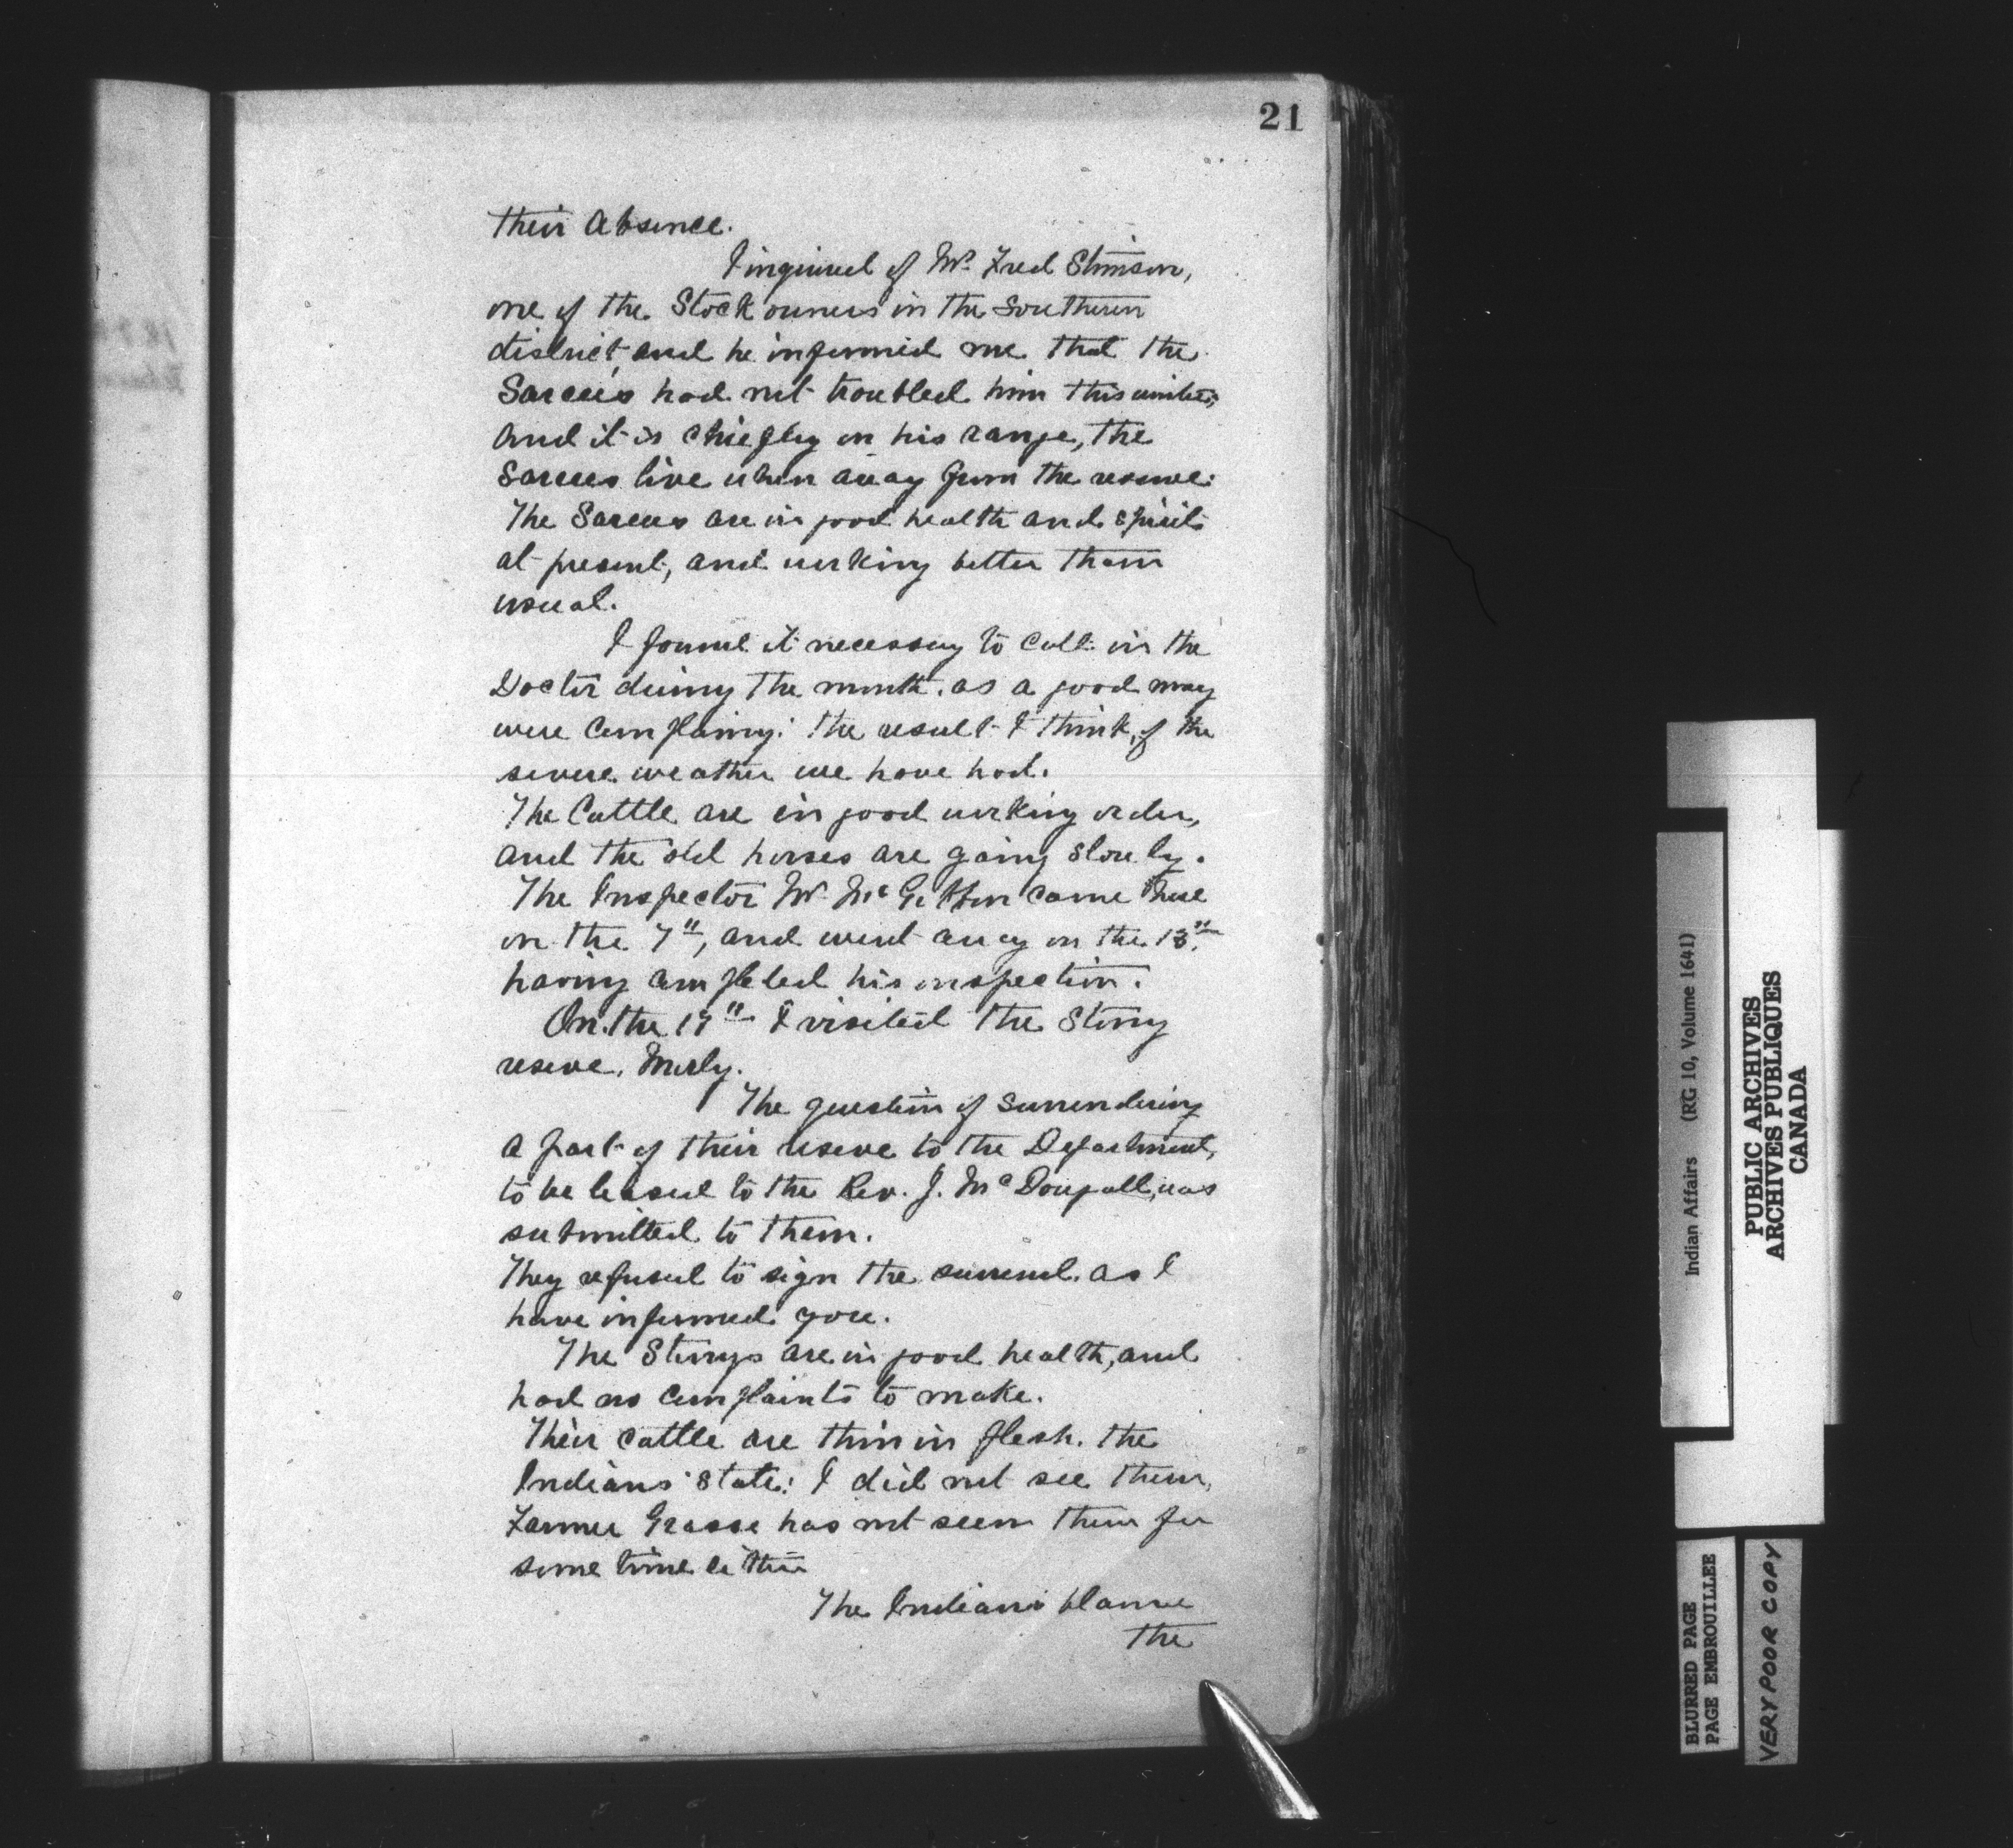 21
their absence.
I inquired of Mr. Fred Stimson,
one of the Stock owners in the Southern
district, and he informed me that the
Sarcees had not troubled him this winter,
and it is chiefly on his range, the
Sarcees live when away from the reserve.
The Sarcees are in good health and spirits
at present, and working better than
usual.
I found it necessary to call in the
Doctor during the month, as a good many
were complaining: the result I think, of the
severe weather we have had.
The Cattle are in good working order,
and the old horses are going slowly.
The Inspector Mr. McGibbon came here
on the 7th, and went away on the 13th
having completed his inspection.
On the 17th I visited the Stony
reserve, Morly.
The question of surrendering
a part of their reserve to the Department,
to be leased to the Rev. J. McDougall, was
submitted to them.
They refused to sign the surrend. as I
have informed you.
The Stonys are in good health, and
had no complaints to make.
Their cattle are thin in flesh. the
Indians state: I did not see them,
Farmer Grasse has not seem them for
some time either
The Indians blame
the
Indian Affairs (RG 10, Volume 1641)
PUBLIC ARCHIVES
ARCHIVES PUBLIQUES
CANADA
BLURRED PAGE
PAGE EMBROUILLEE
VERY POOR COPY